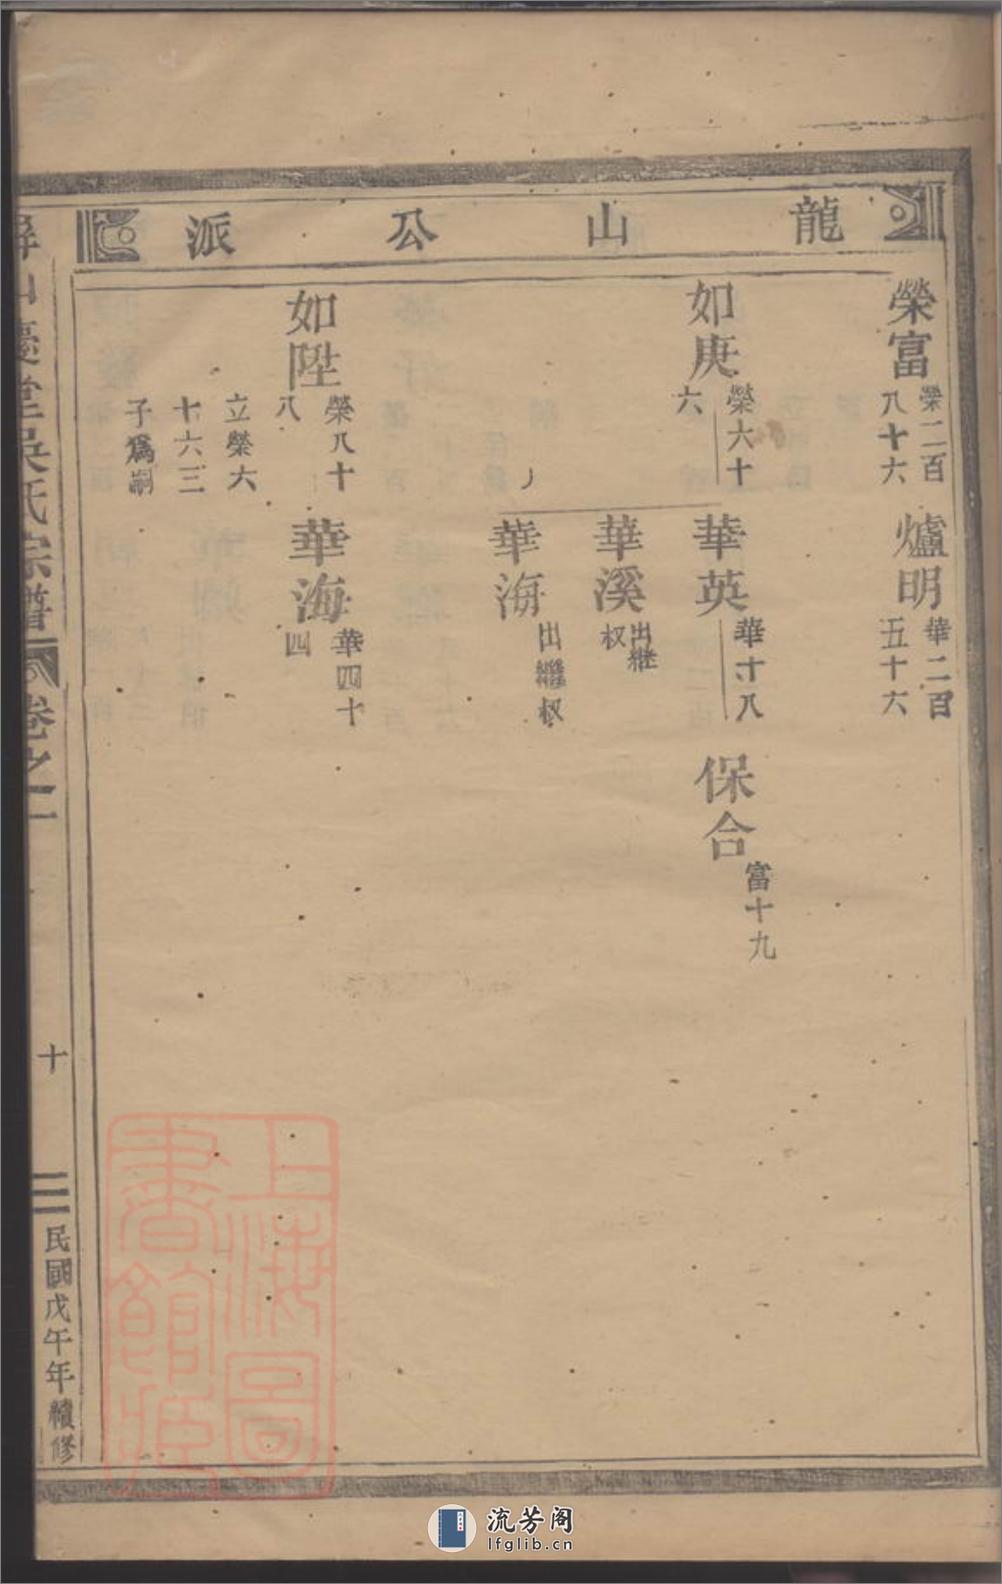 龍山公派
榮富
榮二百
八十六
爐明
華二百
五十六
如庚
榮六十
六
華英
華十八
保合
富十九
華溪
出繼
权
華海
出繼权
如陞
榮八十
八
立榮六
十六三
子爲嗣
華海
華四十
四
屏山慶堂吳氏宗譜
卷之一
十
民國戊午年續修
上海圖書館藏
流芳阁
lfglib.cn